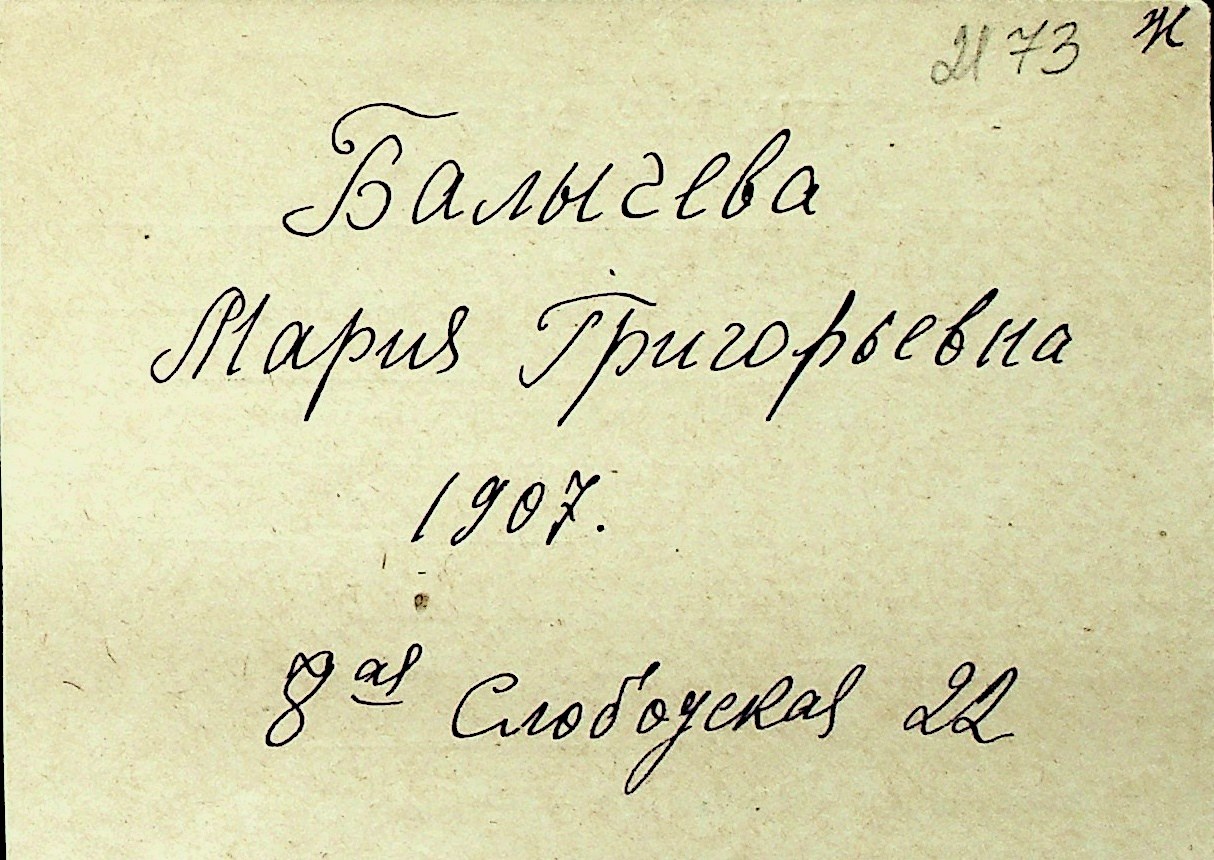 2173 Ж
Балычева
Мария Григорьевна
1907.
8ая Слободская 22